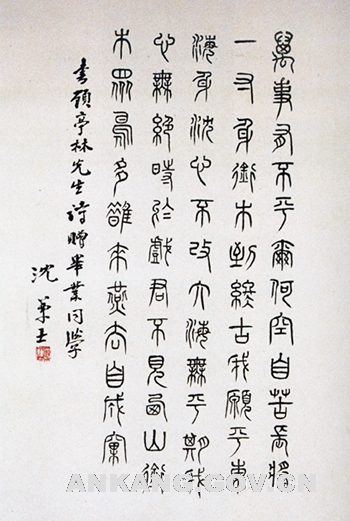 萬事有不平爾何空自苦長將
一寸身銜木到終古我願平東
海身沈心不改大海無平期我
心無絕時於戲君不見西山銜
木眾鳥多鵲來燕去自成窠
书顧亭林先生詩贈畢業同學
沈兼士
ANKANG.GOV.CN